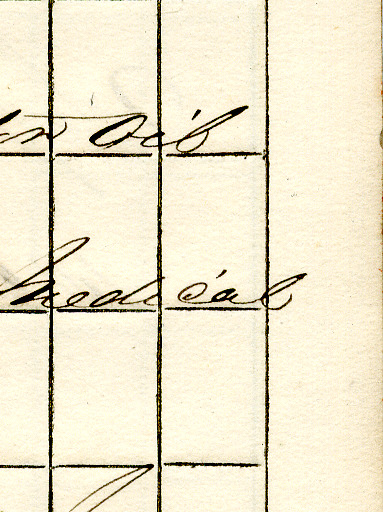 Oil
Medical